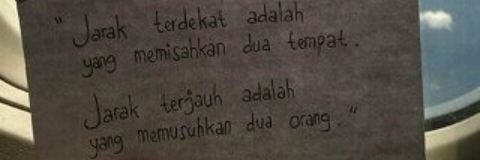 "Jarak terdekat adalah
yang memisahkan dua tempat.
Jarak terjauh adalah
yang memusuhkan dua orang."